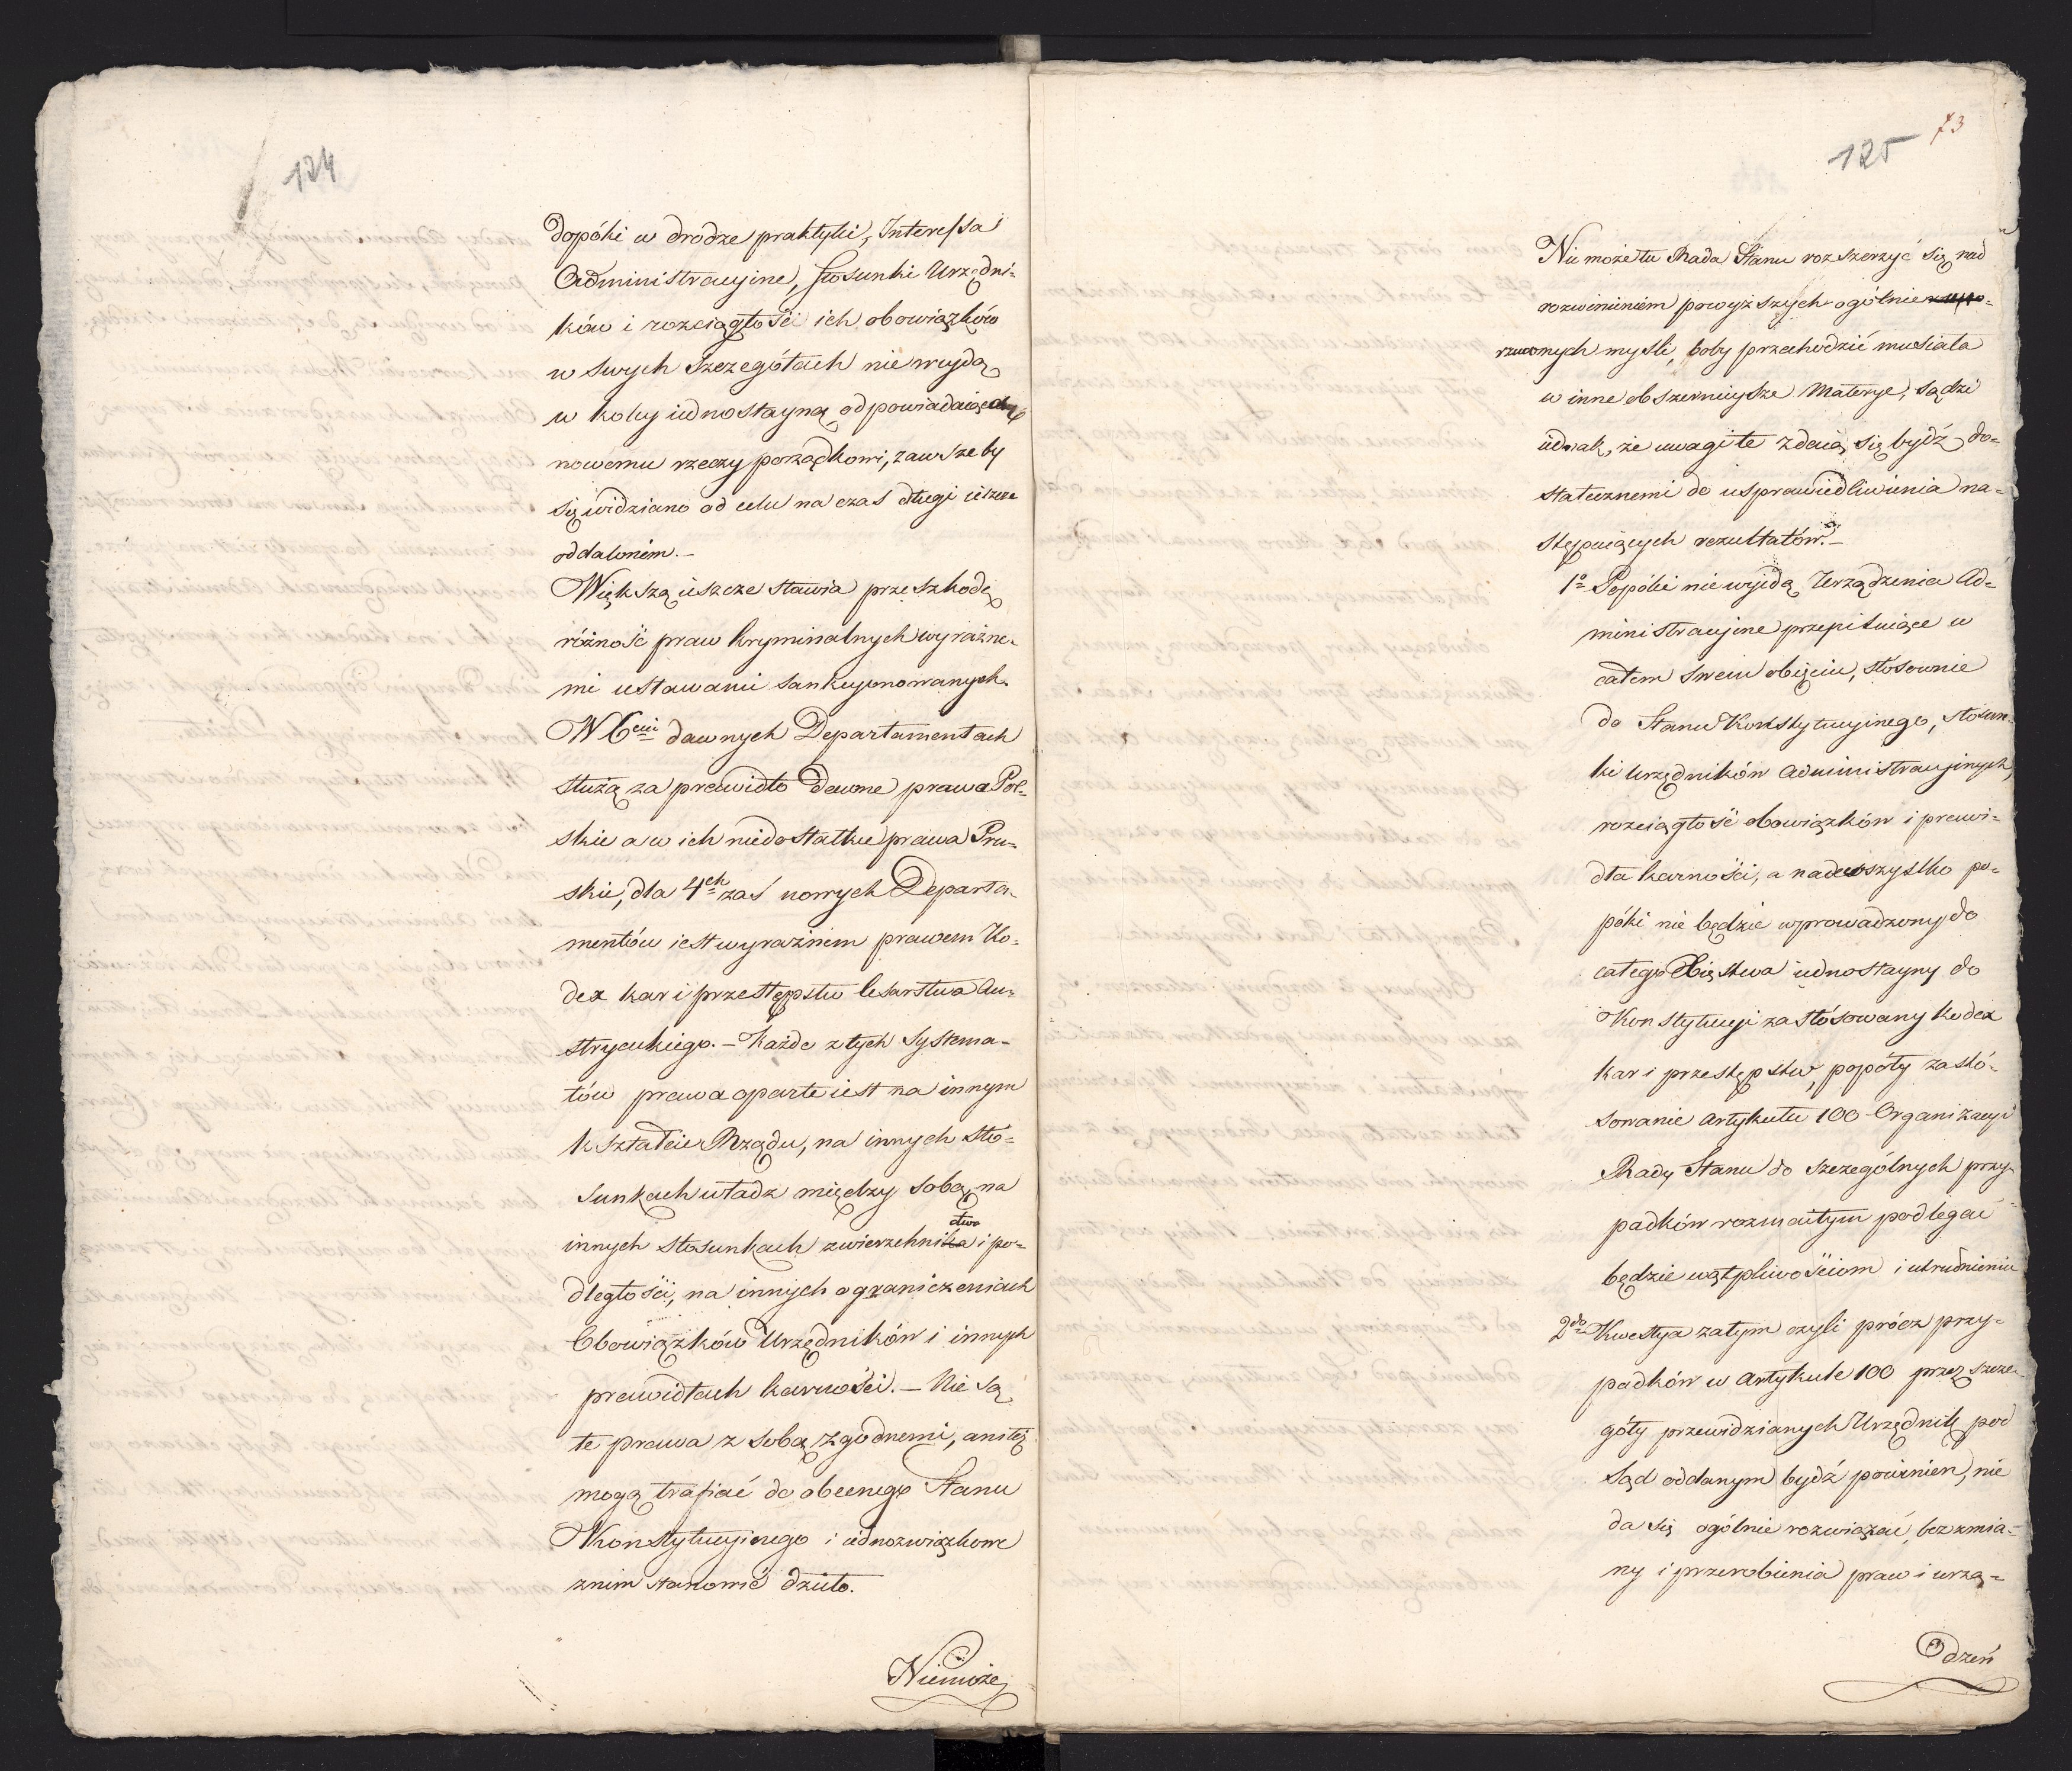 124
dopóki w drodze praktyki, Interessa
Administracyine, stosunki Urzędni-
ków i rozciągłości ich obowiązków
w swych szczegółach nie weydą
w koley iednostayną odpowiadaiącą
nowemu rzeczy porządkowi, zawsze by
się widziano od celu na czas długi ieszcze
oddalonem.-
Większą ieszcze stawia przeszkodę
różność praw kryminalnych wyraźne-
mi ustawami sankcyonowanych.
W 6ciu dawnych Departamentach
służą za prawidło dawne prawa Pol-
skie a w ich niedostatku prawa Pru-
skie, dla 4ch zaś nowych Departa-
mentów iest wyraźnem prawem Ko-
dex kar i przestępstw Cesarstwa Au-
stryackiego.- Każde z tych Systema-
tów prawa oparte iest na innym
kształcie Rządu, na innych sto-
sunkach władz między sobą, na
innych stosunkach zwierzchnictwa i po-
dległości, na innych ograniczeniach
Obowiązków Urzędników i innych
prawidłach karności.- Nie są
te prawa z sobą zgodnemi, ani też
mogą trafiać do obecnego Stanu
Konstytucyinego i iednozwiązkowe
z nim stanowić dzieło.
Niemoże
73
125
Nie może tu Rada Stanu rozszerzyć się nad
rozwinieniem powyższych ogólnie
rzuconych myśli, boby przechodzić musiała
w inne obszernieysze materye, sądzi
iednak, że uwagi te zdaią się bydź do-
statecznemi do usprawiedliwienia na-
stępuiących rezultatów.-
1o Popóki nie wyidą Urządzenia Ad-
ministracyine przepisuiące w
całem swem obięciu, stosownie
do Stanu Konstytucyinego, stosun-
ki urzędników administracyinych,
rozciągłość obowiązków i prawi-
dła karności, a nadewszystko po-
póki nie będzie wprowadzony do
całego Xięstwa iednostayny do
Konstytucyi zastósowany kodex
kar i przestępstw, popóty zastó-
sowanie Artykułu 100 Organizacyi
Rady Stanu do szczególnych przy-
padków rozmaitym podlegać
będzie wątpliwościom i utrudnieniu
2do Kwestya zatym czyli prócz przy-
padków w Artykule 100 przez szcze-
góły przewidzianych Urzędnik pod
Sąd oddanym bydź powinien, nie
da się ogólnie rozwiązać, bez zmia-
ny i przerobienia praw i urzą-
dzeń